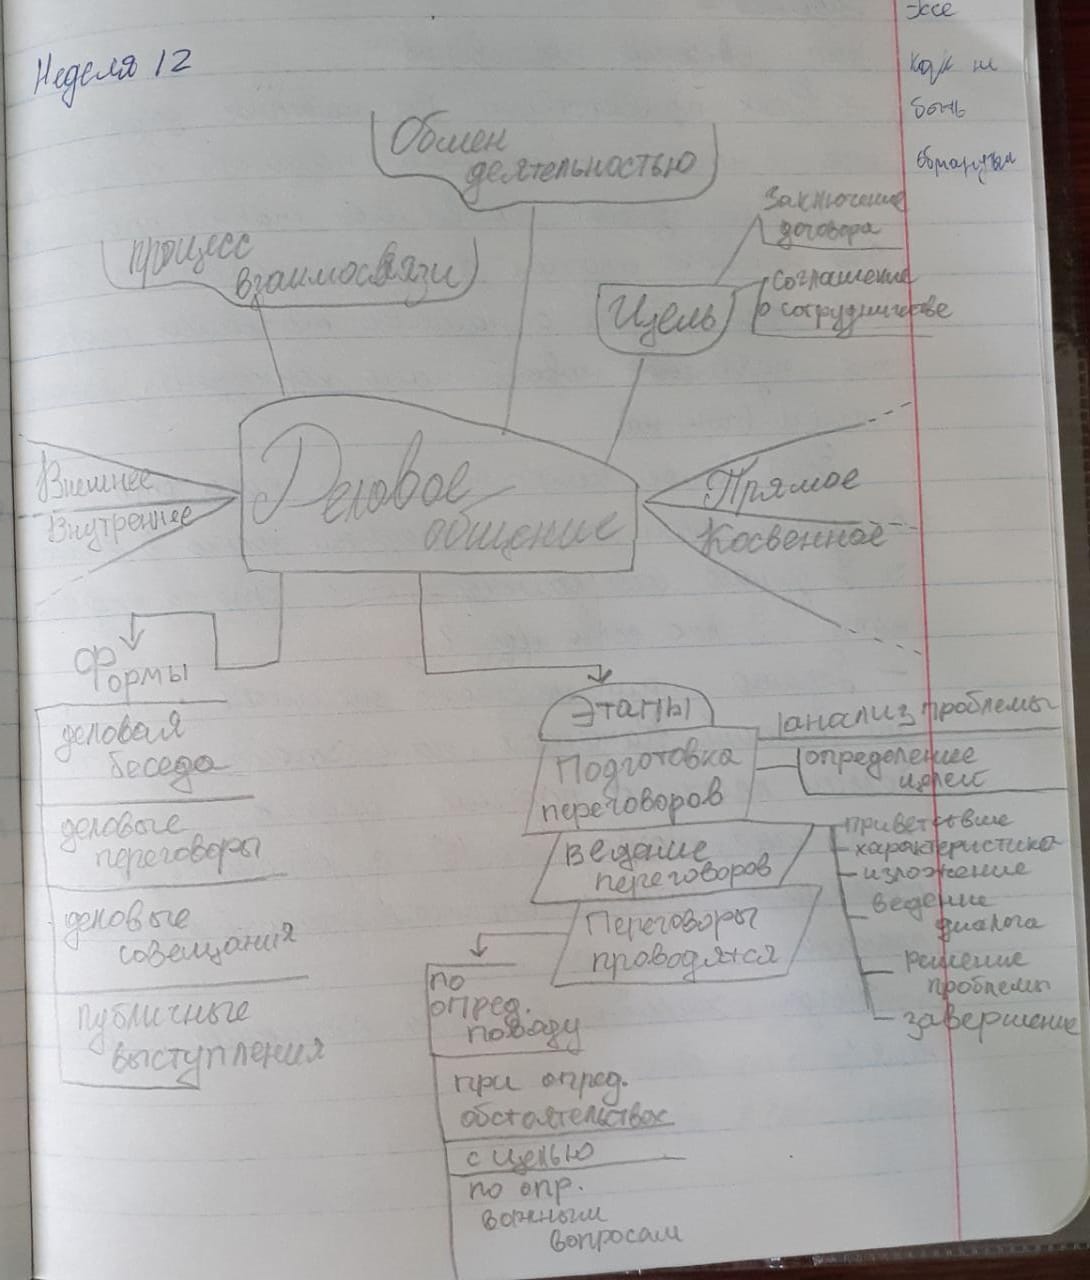 Неделя 12
эссе
как не
быть
обманутым
Обмен
деятельностью
процесс
взаимосвязи
Цель
Заключение
договора
соглашение
о сотрудничестве
Деловое
общение
Внешнее
Внутреннее
Прямое
Косвенное
Формы
деловая
беседа
деловые
переговоры
деловые
совещания
публичные
выступления
Этапы
Подготовка
переговоров
анализ проблемы
определение
целей
ведение
переговоров
приветствие
характеристика
изложение
ведение
диалога
решение
проблемы
завершение
Переговоры
проводятся
по
опред.
поводу
при опред.
обстоятельствах
с целью
по опр.
важным
вопросам